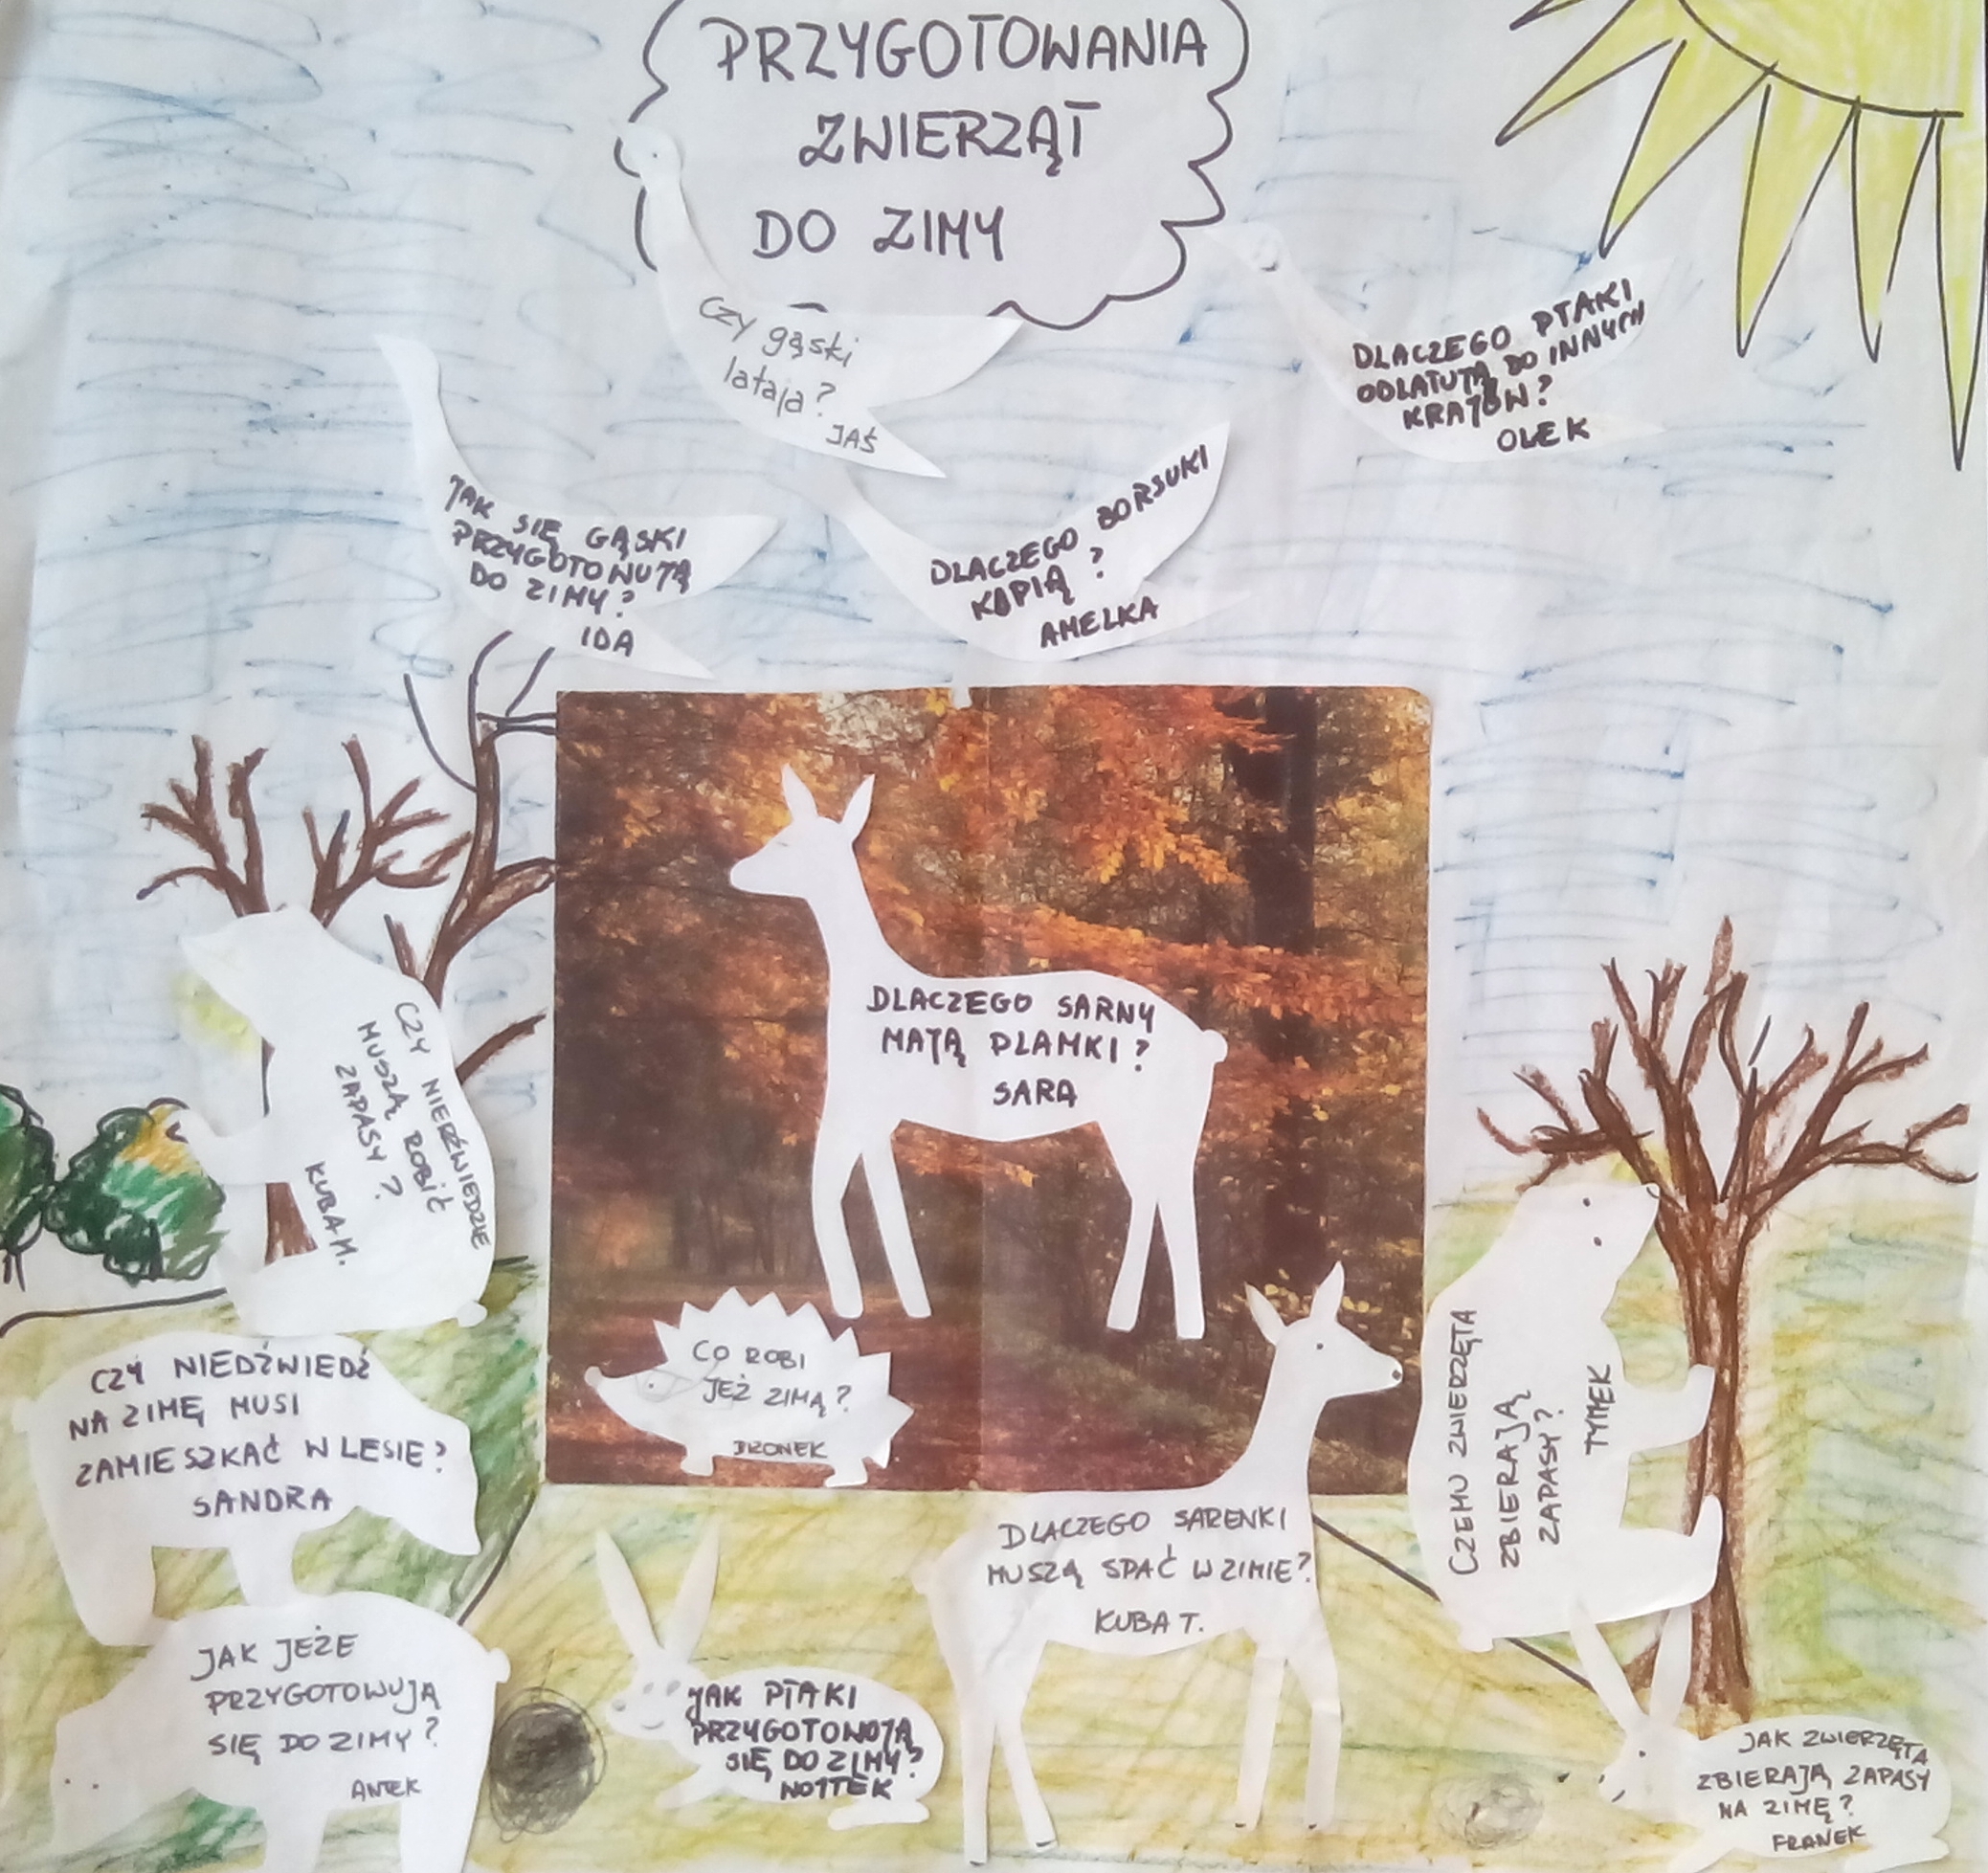 PRZYGOTOWANIA
ZWIERZĄT
DO ZIMY
Czy gąski
latają?
JAŚ
DLACZEGO PTAKI
ODLATUJĄ DO INNYCH
KRAJÓW?
OLEK
JAK SIĘ GĄSKI
PRZYGOTOWUJĄ
DO ZIMY?
IDA
DLACZEGO BORSUKI
KOPIĄ?
AMELKA
DLACZEGO SARNY
MAJĄ PLAMKI?
SARA
CZY NIEDŹWIEDZIE
MUSZĄ ROBIĆ
ZAPASY?
KUBA M.
CO ROBI
JEŻ ZIMĄ?
BRONEK
CZEMU ZWIERZĘTA
ZBIERAJĄ
ZAPASY?
TYMEK
CZY NIEDŹWIEDŹ
NA ZIMĘ MUSI
ZAMIESZKAĆ W LESIE?
SANDRA
DLACZEGO SARENKI
MUSZĄ SPAĆ W ZIMIE?
KUBA T.
JAK JEŻE
PRZYGOTOWUJĄ
SIĘ DO ZIMY?
ANTEK
JAK PTAKI
PRZYGOTOWUJĄ
SIĘ DO ZIMY?
WOJTEK
JAK ZWIERZĘTA
ZBIERAJĄ ZAPASY
NA ZIMĘ?
FRANEK